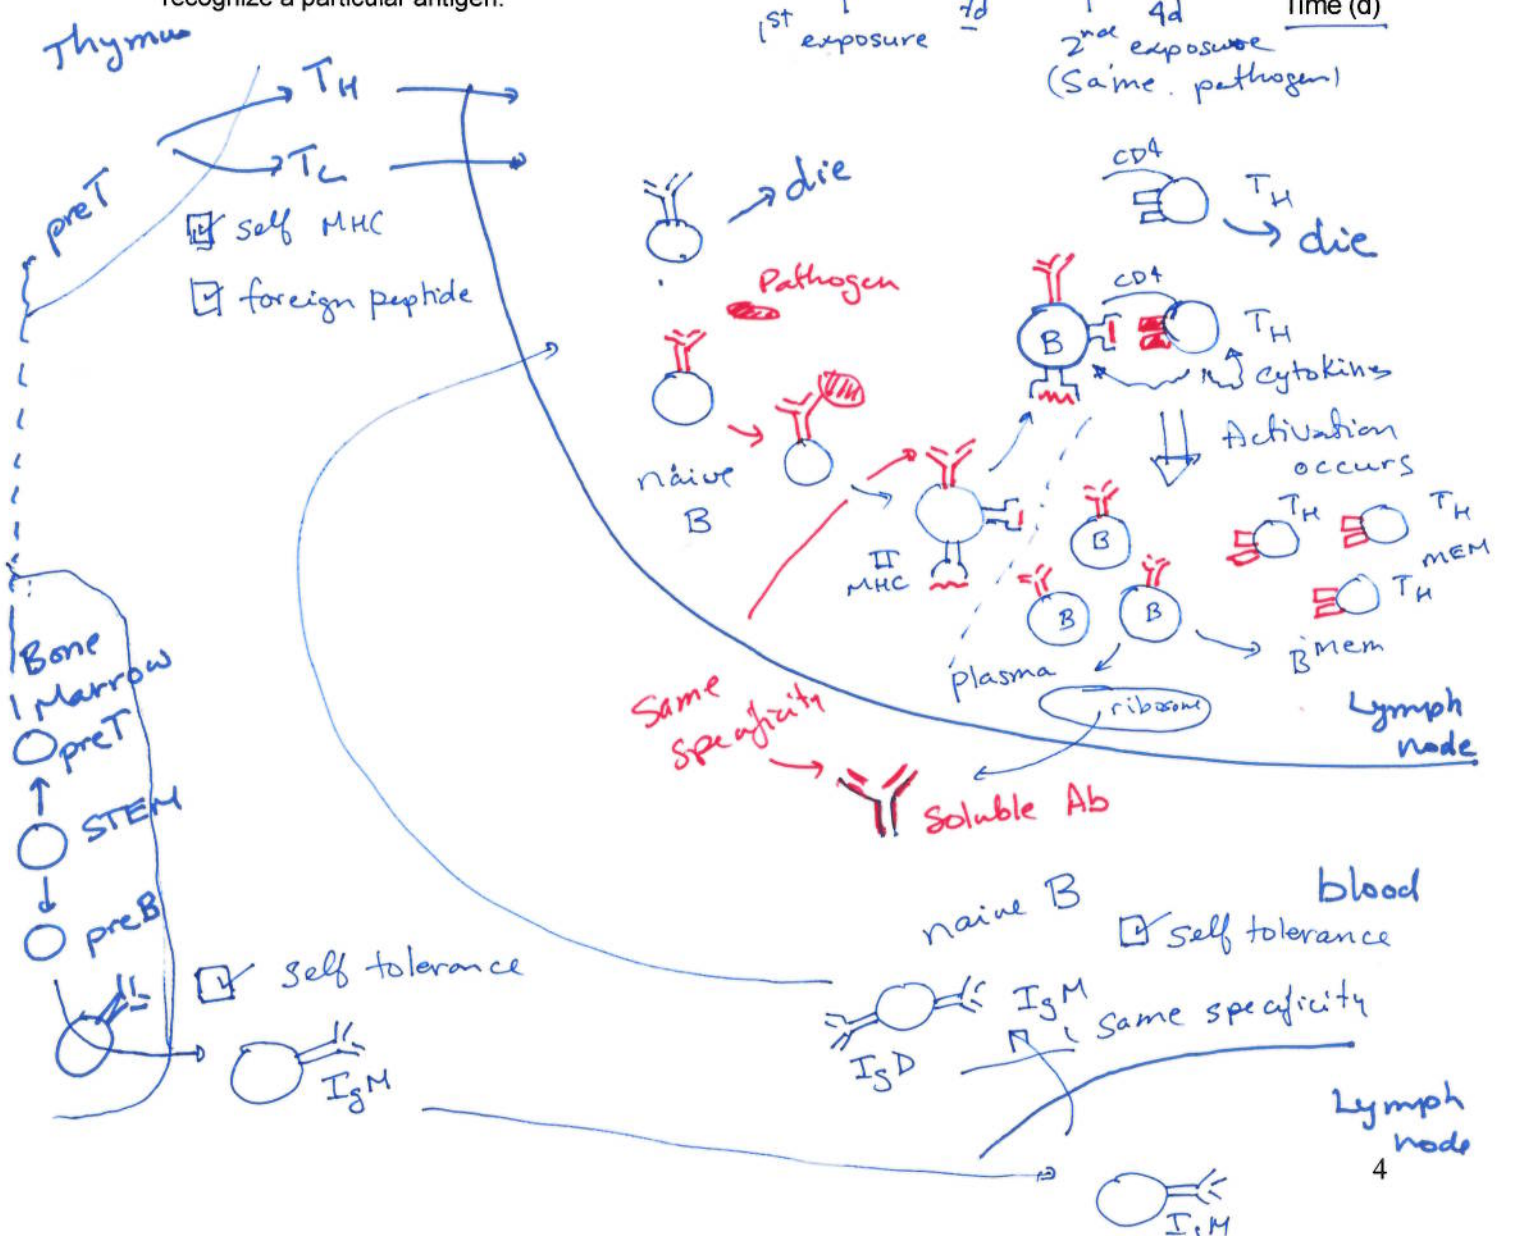 recognize a particular antigen.
1st exposure
7d
2nd exposure
4d
(Same pathogen)
Time (d)
Thymus
preT
TH
TC
self MHC
foreign peptide
die
Pathogen
naive
B
II
MHC
CD4
TH
die
B
CD4
TH
cytokines
Activation
occurs
B
B
B
TH
TH
MEM
TH
B mem
plasma
ribosome
Lymph
node
Same
specificity
Soluble Ab
Bone
Marrow
preT
STEM
preB
self tolerance
IgM
naive B
blood
self tolerance
IgM
IgD
same specificity
Lymph
node
4
IgM